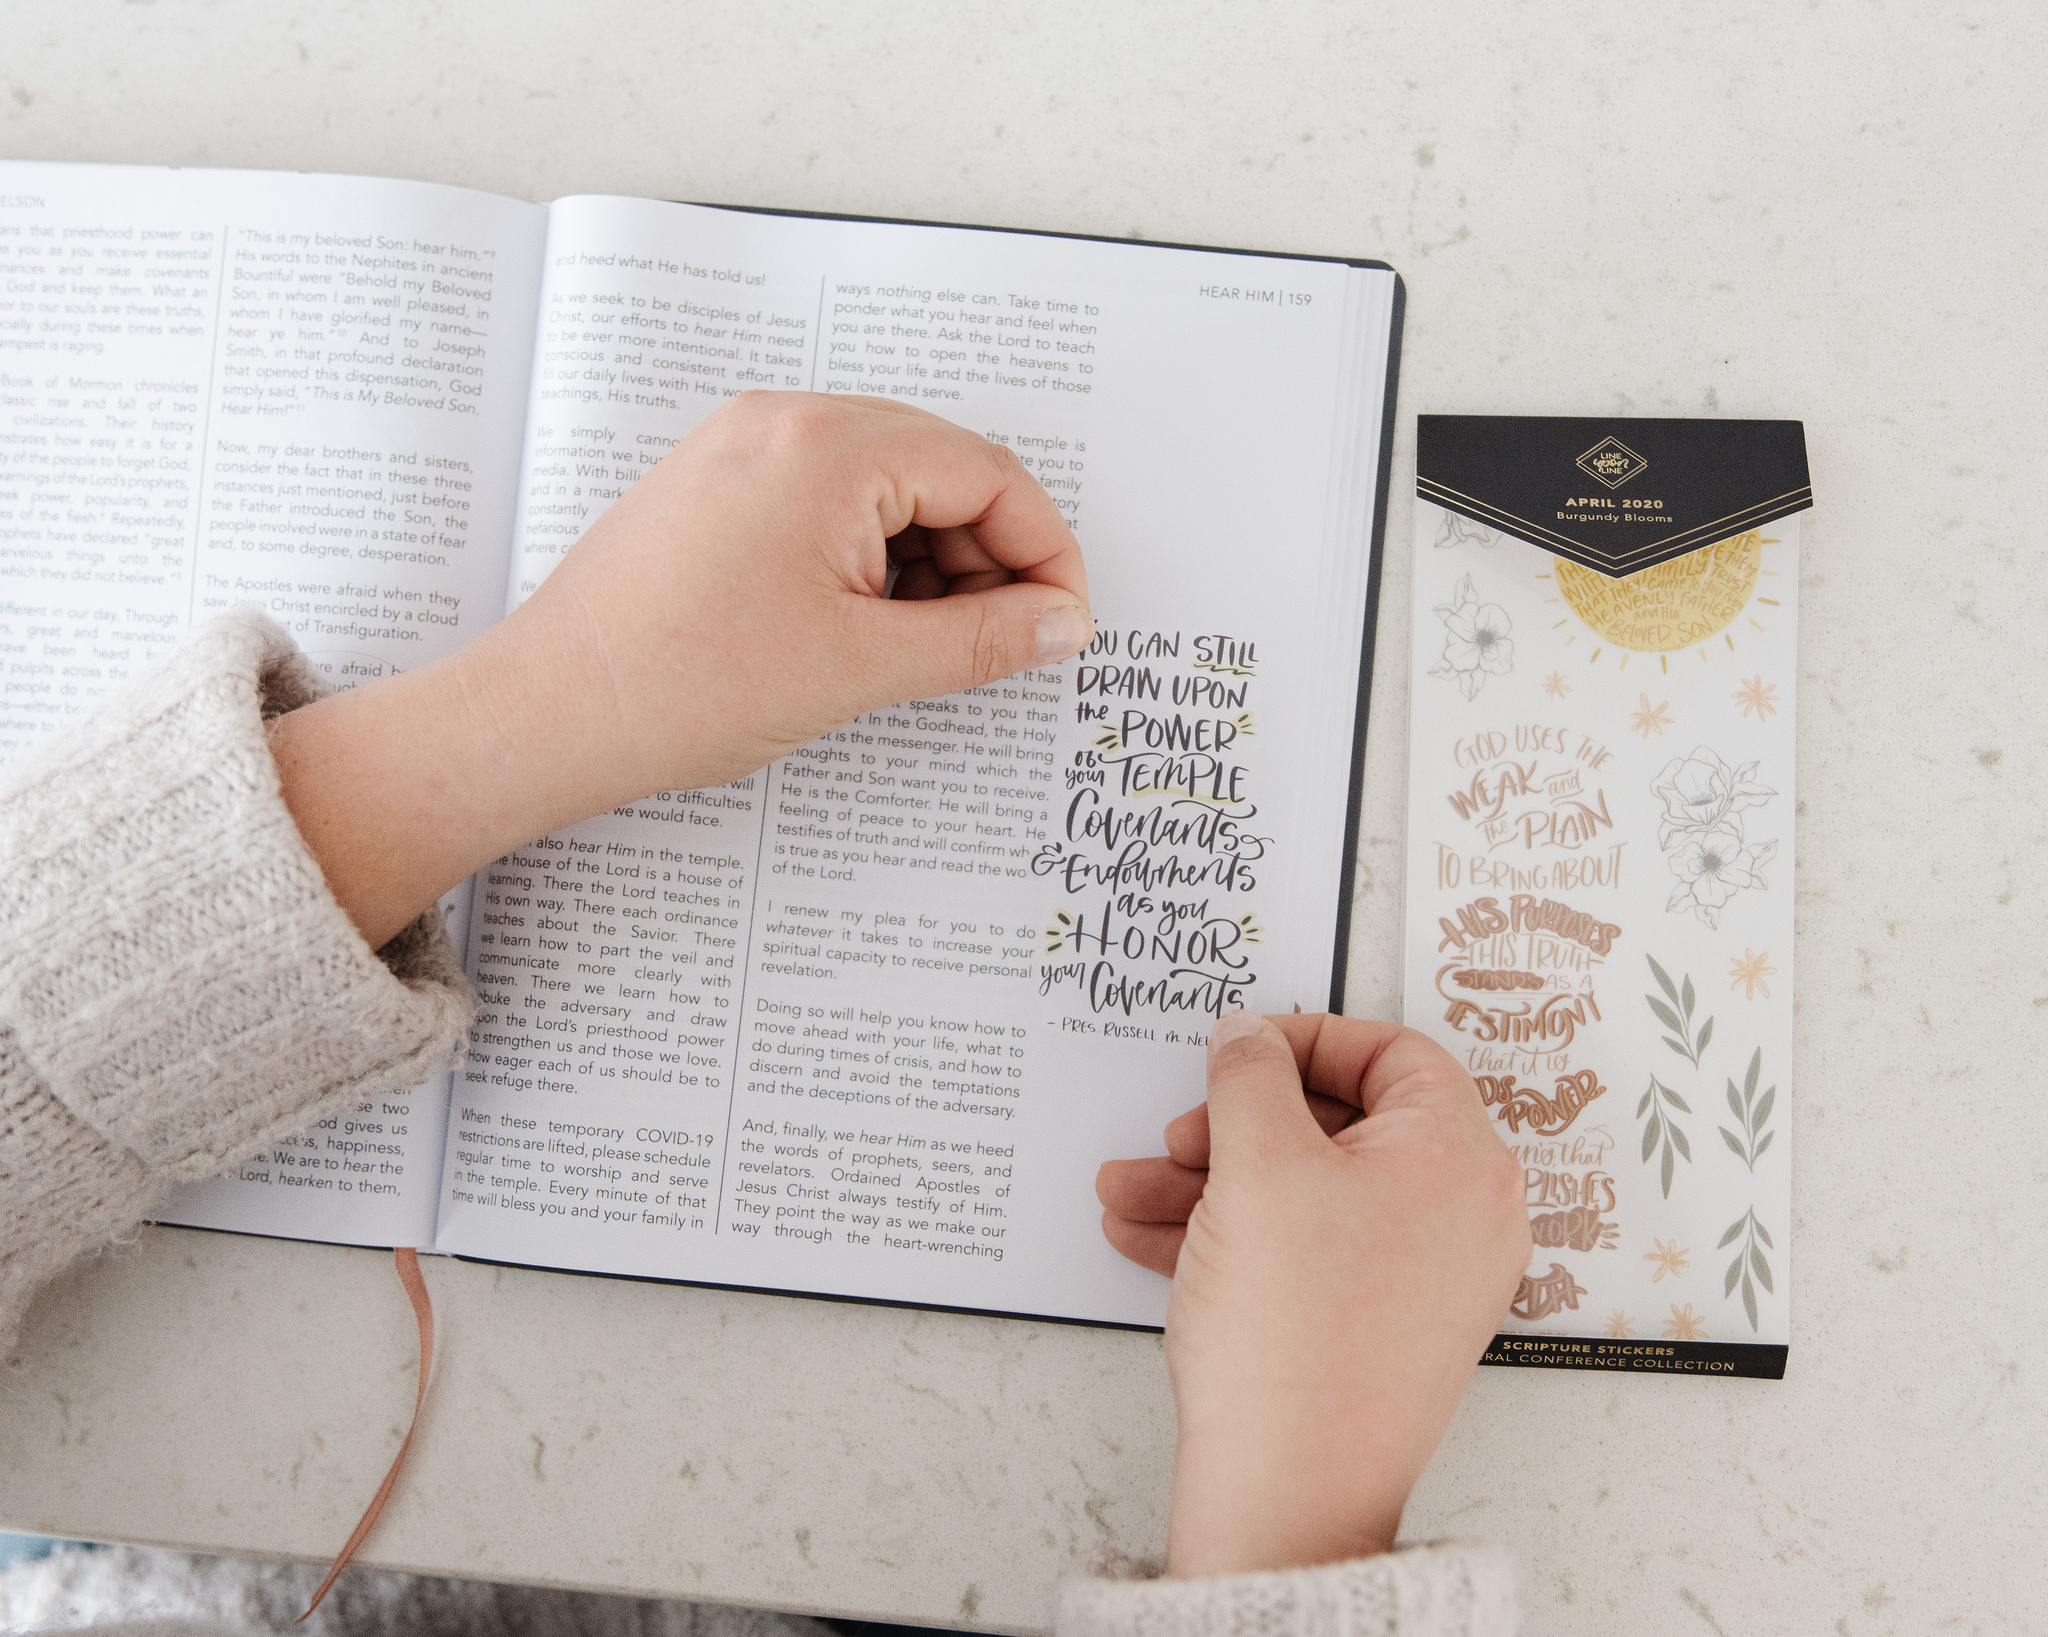 ELSON
ans that priesthood power can
s you as you receive essential
nances and make covenants
God and keep them. What an
or to our souls are these truths,
cially during these times when
empest is raging.
Book of Mormon chronicles
classic rise and fall of two
civilizations. Their history
nstrates how easy it is for a
ty of the people to forget God,
warnings of the Lord's prophets,
eek power, popularity, and
es of the flesh. Repeatedly,
ophets have declared "great
arvelous things unto the
which they did not believe."
different in our day. Through
rs, great and marvelous
have been heard
pulpits across the
people do
"This is my beloved Son: hear him."9
His words to the Nephites in ancient
Bountiful were "Behold my Beloved
Son, in whom I am well pleased, in
whom I have glorified my name—
hear ye him."10 And to Joseph
Smith, in that profound declaration
that opened this dispensation, God
simply said, "This is My Beloved Son.
Hear Him!"11
Now, my dear brothers and sisters,
consider the fact that in these three
instances just mentioned, just before
the Father introduced the Son, the
people involved were in a state of fear
and, to some degree, desperation.
The Apostles were afraid when they
saw Jesus Christ encircled by a cloud
of Transfiguration.
re afraid
se two
od gives us
happiness,
We are to hear the
Lord, hearken to them,
and heed what He has told us!
As we seek to be disciples of Jesus
Christ, our efforts to hear Him need
to be ever more intentional. It takes
conscious and consistent effort to
fill our daily lives with His wo
teachings, His truths.
We simply canno
information we bu
media. With billi
and in a mark
constantly
nefarious
where ca
We
will
to difficulties
we would face.
also hear Him in the temple.
house of the Lord is a house of
learning. There the Lord teaches in
His own way. There each ordinance
teaches about the Savior. There
we learn how to part the veil and
communicate more clearly with
heaven. There we learn how to
rebuke the adversary and draw
upon the Lord's priesthood power
to strengthen us and those we love.
How eager each of us should be to
seek refuge there.
When these temporary COVID-19
restrictions are lifted, please schedule
regular time to worship and serve
in the temple. Every minute of that
time will bless you and your family in
HEAR HIM | 159
ways nothing else can. Take time to
ponder what you hear and feel when
you are there. Ask the Lord to teach
you how to open the heavens to
bless your life and the lives of those
you love and serve.
the temple is
ite you to
family
tory
at
It has
ative to know
speaks to you than
In the Godhead, the Holy
st is the messenger. He will bring
thoughts to your mind which the
Father and Son want you to receive.
He is the Comforter. He will bring a
feeling of peace to your heart. He
testifies of truth and will confirm wh
is true as you hear and read the wo
of the Lord.
I renew my plea for you to do
whatever it takes to increase your
spiritual capacity to receive personal
revelation.
Doing so will help you know how to
move ahead with your life, what to
do during times of crisis, and how to
discern and avoid the temptations
and the deceptions of the adversary.
And, finally, we hear Him as we heed
the words of prophets, seers, and
revelators. Ordained Apostles of
Jesus Christ always testify of Him.
They point the way as we make our
way through the heart-wrenching
YOU CAN STILL
DRAW UPON
the POWER
of your TEMPLE
Covenants
& Endowments
as you
HONOR
your Covenants
- PRES. RUSSELL M. NE
LINE
upon
LINE
APRIL 2020
Burgundy Blooms
WITH FAMILY TRUST
THAT THEY CAME TO YOU FROM
HEAVENLY FATHER
and His
BELOVED SON
GOD USES THE
WEAK and
the PLAIN
TO BRING ABOUT
HIS PURPOSES
THIS TRUTH
STANDS AS A
TESTIMONY
that it is
DS
POWER
that
PLISHES
WORK
SCRIPTURE STICKERS
RAL CONFERENCE COLLECTION